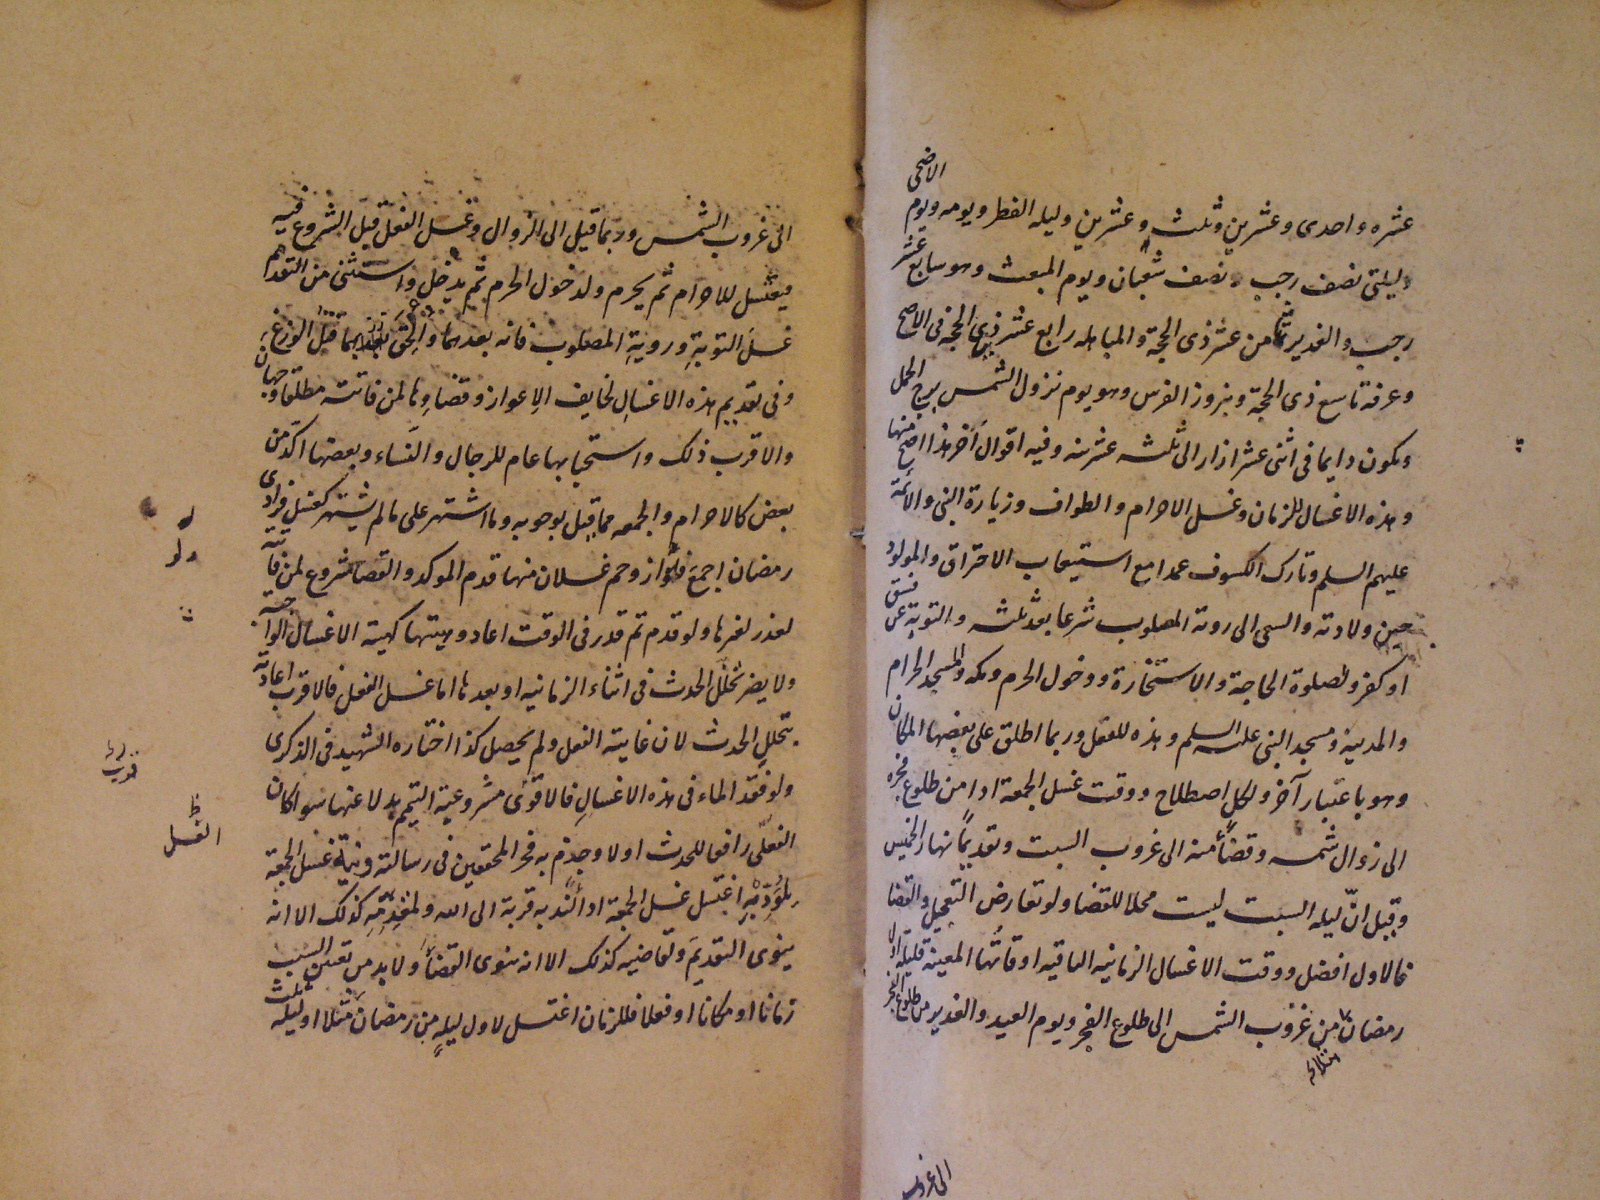 الاضحى
عشره واحدى وعشرين وثلث وعشرين وليله الفطر ويومه ويوم
وليلتى نصف رجب ونصف شعبان ويوم المبعث وهو سابع عشر
رجب والغدير ثامن عشر ذى الحجة والمباهله رابع عشر ذى الحجة فى الاصح
وعرفة تاسع ذى الحجة ونيروز الفرس وهو يوم نزول الشمس برج الحمل
ويكون دايما فى اثنى عشر اذار الى ثلثه عشر منه وفيه اقوال اخر هذا اصح منها
وهذه الاغسال للزمان وغسل الاحرام والطواف وزيارة النبى والائمة
عليهم السلم وتارك الكسوف عمدا مع استيعاب الاحتراق والمولود
حين ولادته والسعى الى روية المصلوب شرعا بعد ثلثه والتوبة عن فسق
او كفر ولصلوة الحاجة والاستخارة ودخول الحرم ومكه والمسجد الحرام
والمدينة ومسجد النبى عليه السلم وهذه للفعل وربما اطلق على بعضها المكان
وهو باعتبار آخر ولكل اصطلاح ووقت غسل الجمعة ادا من طلوع فجره
الى زوال شمسه وقضاً منه الى غروب السبت وتقديماً نهار الخميس
وقيل انّ ليله السبت ليست محلا للقضا ولو تعارض التعجيل والقضا
فالاول افضل ووقت الاغسال الزمانيه الباقيه اوقاتها المعينة فليله اول
رمضان من غروب الشمس الى طلوع الفجر ويوم العيد والغدير من طلوع الفجر
مثلا
الى غروب
الى غروب الشمس وربما قيل الى الزوال وغسل الفعل قبل الشروع فيه
فيغتسل للاحرام ثم يحرم ولدخول الحرم ثم يدخل واستثنى من التقديم
غسل التوبة وروية المصلوب فانه بعدهما والحق بهما قتل الوزغ
وفى تقديم هذه الاغسال لخايف الاعواز وقضاوها لمن فاتته مطلقا وجهان
والاقرب ذلك واستحبابها عام للرجال والنساء وبعضها اكد من
بعض كالاحرام والجمعه مما قيل بوجوبه وما اشتهر على ما لم يشتهر كغسل فرادى
رمضان اجمع فلو ازدحم غسلان منها قدم الموكد والقضا مشروع لمن فاتته
لعذر لغيرها ولو قدم ثم قدر فى الوقت اعاد وهيئتها كهيئة الاغسال الواجبه
ولا يضر تخلل الحدث فى اثناء الزمانيه او بعدها اما غسل الفعل فالاقرب اعادته
بتخلل الحدث لان غايته الفعل ولم يحصل كذا اختاره الشهيد فى الذكرى
ولو فقد الماء فى هذه الاغسال فالاقوى مشروعية التيمم بدلا عنها سوا كان
الفعلى رافعا للحدث اولا وجزم به فخر المحققين فى رسالته ونية غسل الجمعة
لمؤديه اغتسل غسل الجمعة ادا لندبه قربة الى الله ولمقدمه كذلك الا انه
ينوى التقديم ولقاضيه كذلك الا انه ينوى القضاً ولا بد من تعيين السبب
زمانا او مكانا او فعلا فللزمان اغتسل لاول ليله من رمضان مثلا او ليله ثلث
الغسل